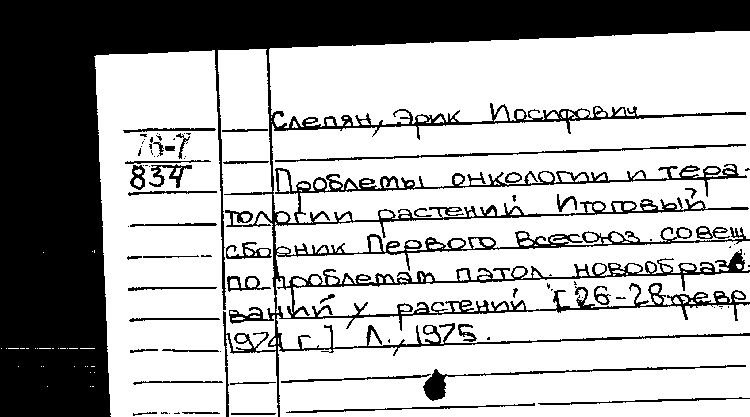 Слепян, Эрик Иосифович
76-7
834
Проблемы онкологии и тера-
тологии растений Итоговый
сборник Первого Всесоюз. совещ
по проблемам патол. новообразо-
ваний у растений [26-28 февр
1974 г.] Л., 1975.